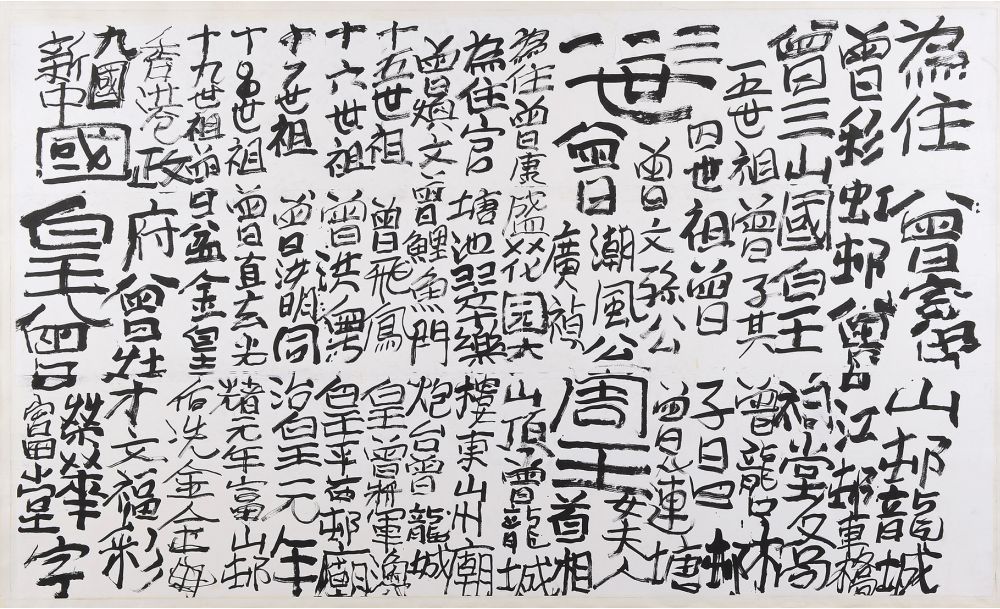 為住曾山邨龍城
曾彩虹邨曾江邨東橋
曾三山國皇祠堂文昌
一五世祖曾子其曾龍
三四世祖曾子曰四邨
二世曾文孫公曾運塘
一世曾潮風公周王女夫人
廣禎首相
為住曾康盛花園大山頂曾龍城
為住官塘池翠樂東山州廟
曾煥文曾鯉魚門炮台曾龍城
十五世祖曾飛鳳皇曾將軍澳
十六世祖曾洪皇平苗邨廟
十七世祖曾洪明同治皇元年
十八世祖曾直玄光緒元年富山邨
十九世祖曾盆金皇冼金金
香港政府曾灶才文福彩
九國榮華字
新中國皇曾富堂